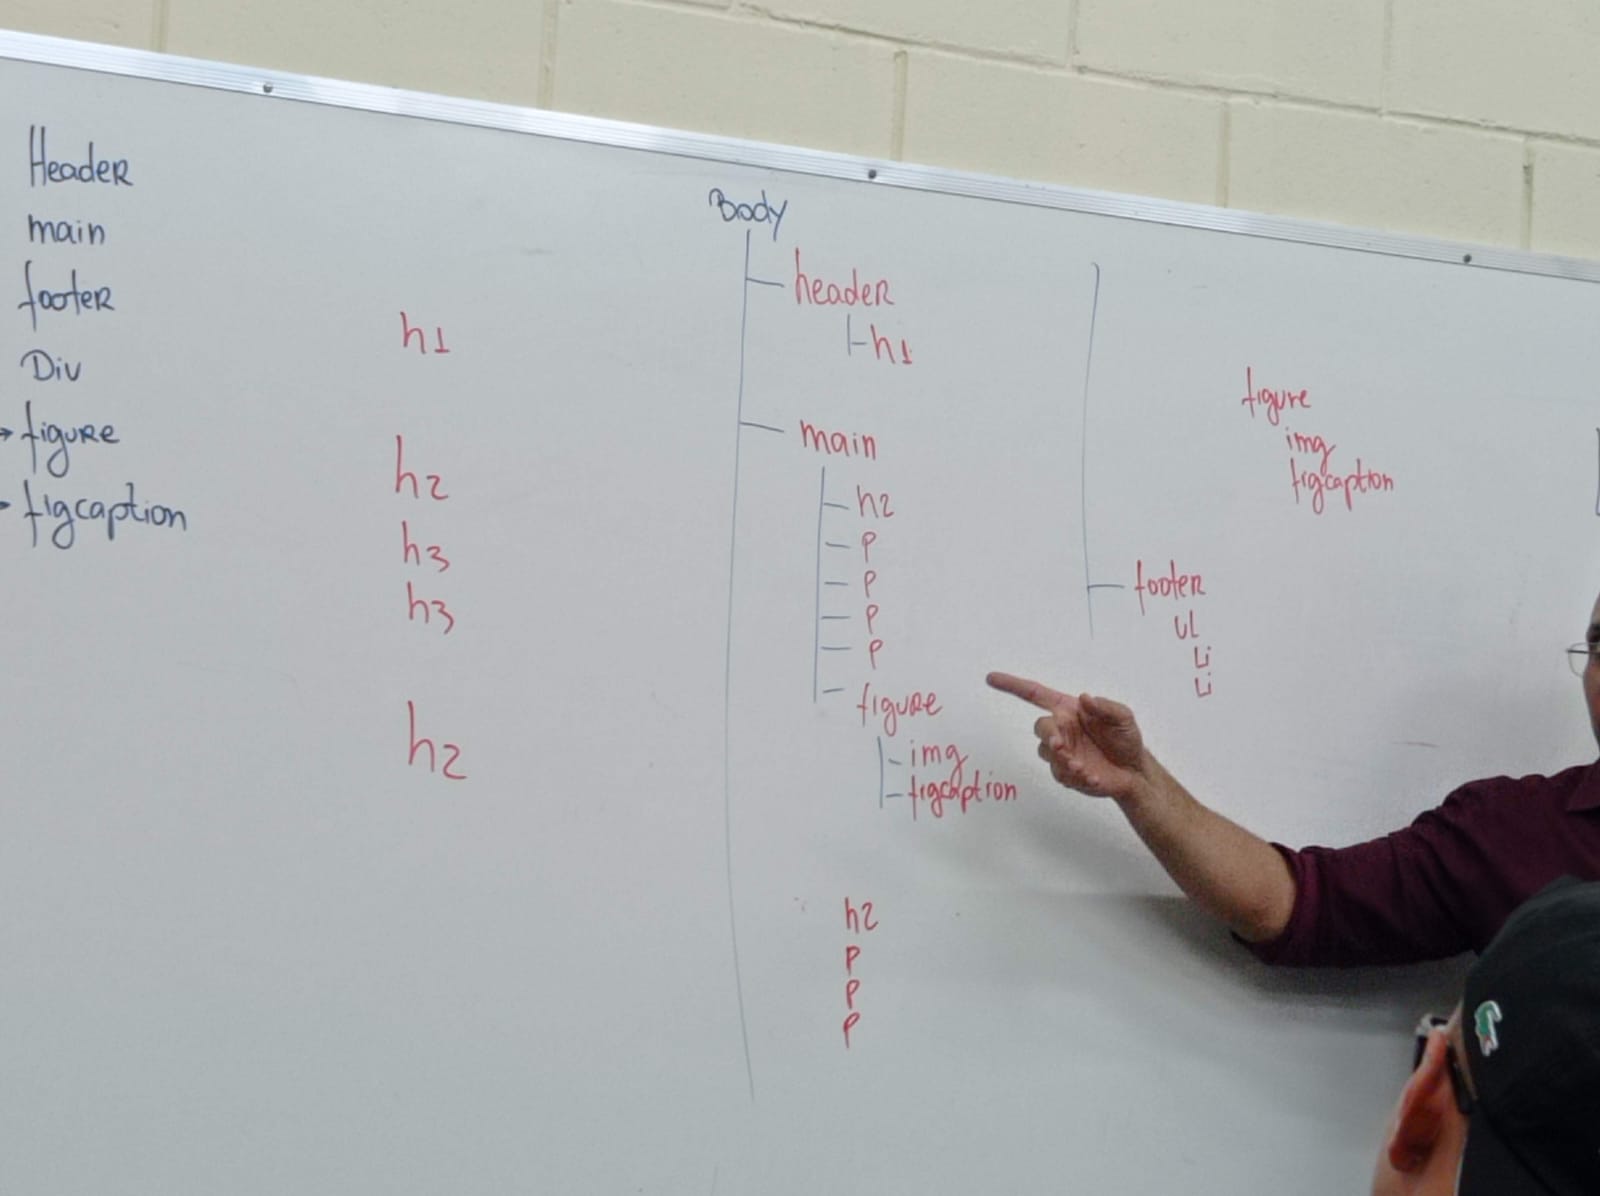 Header
main
footer
Div
→ figure
figcaption
h1
h2
h3
h3
h2
Body
header
h1
main
h2
p
p
p
p
figure
img
figcaption
h2
p
p
p
figure
img
figcaption
footer
UL
Li
Li